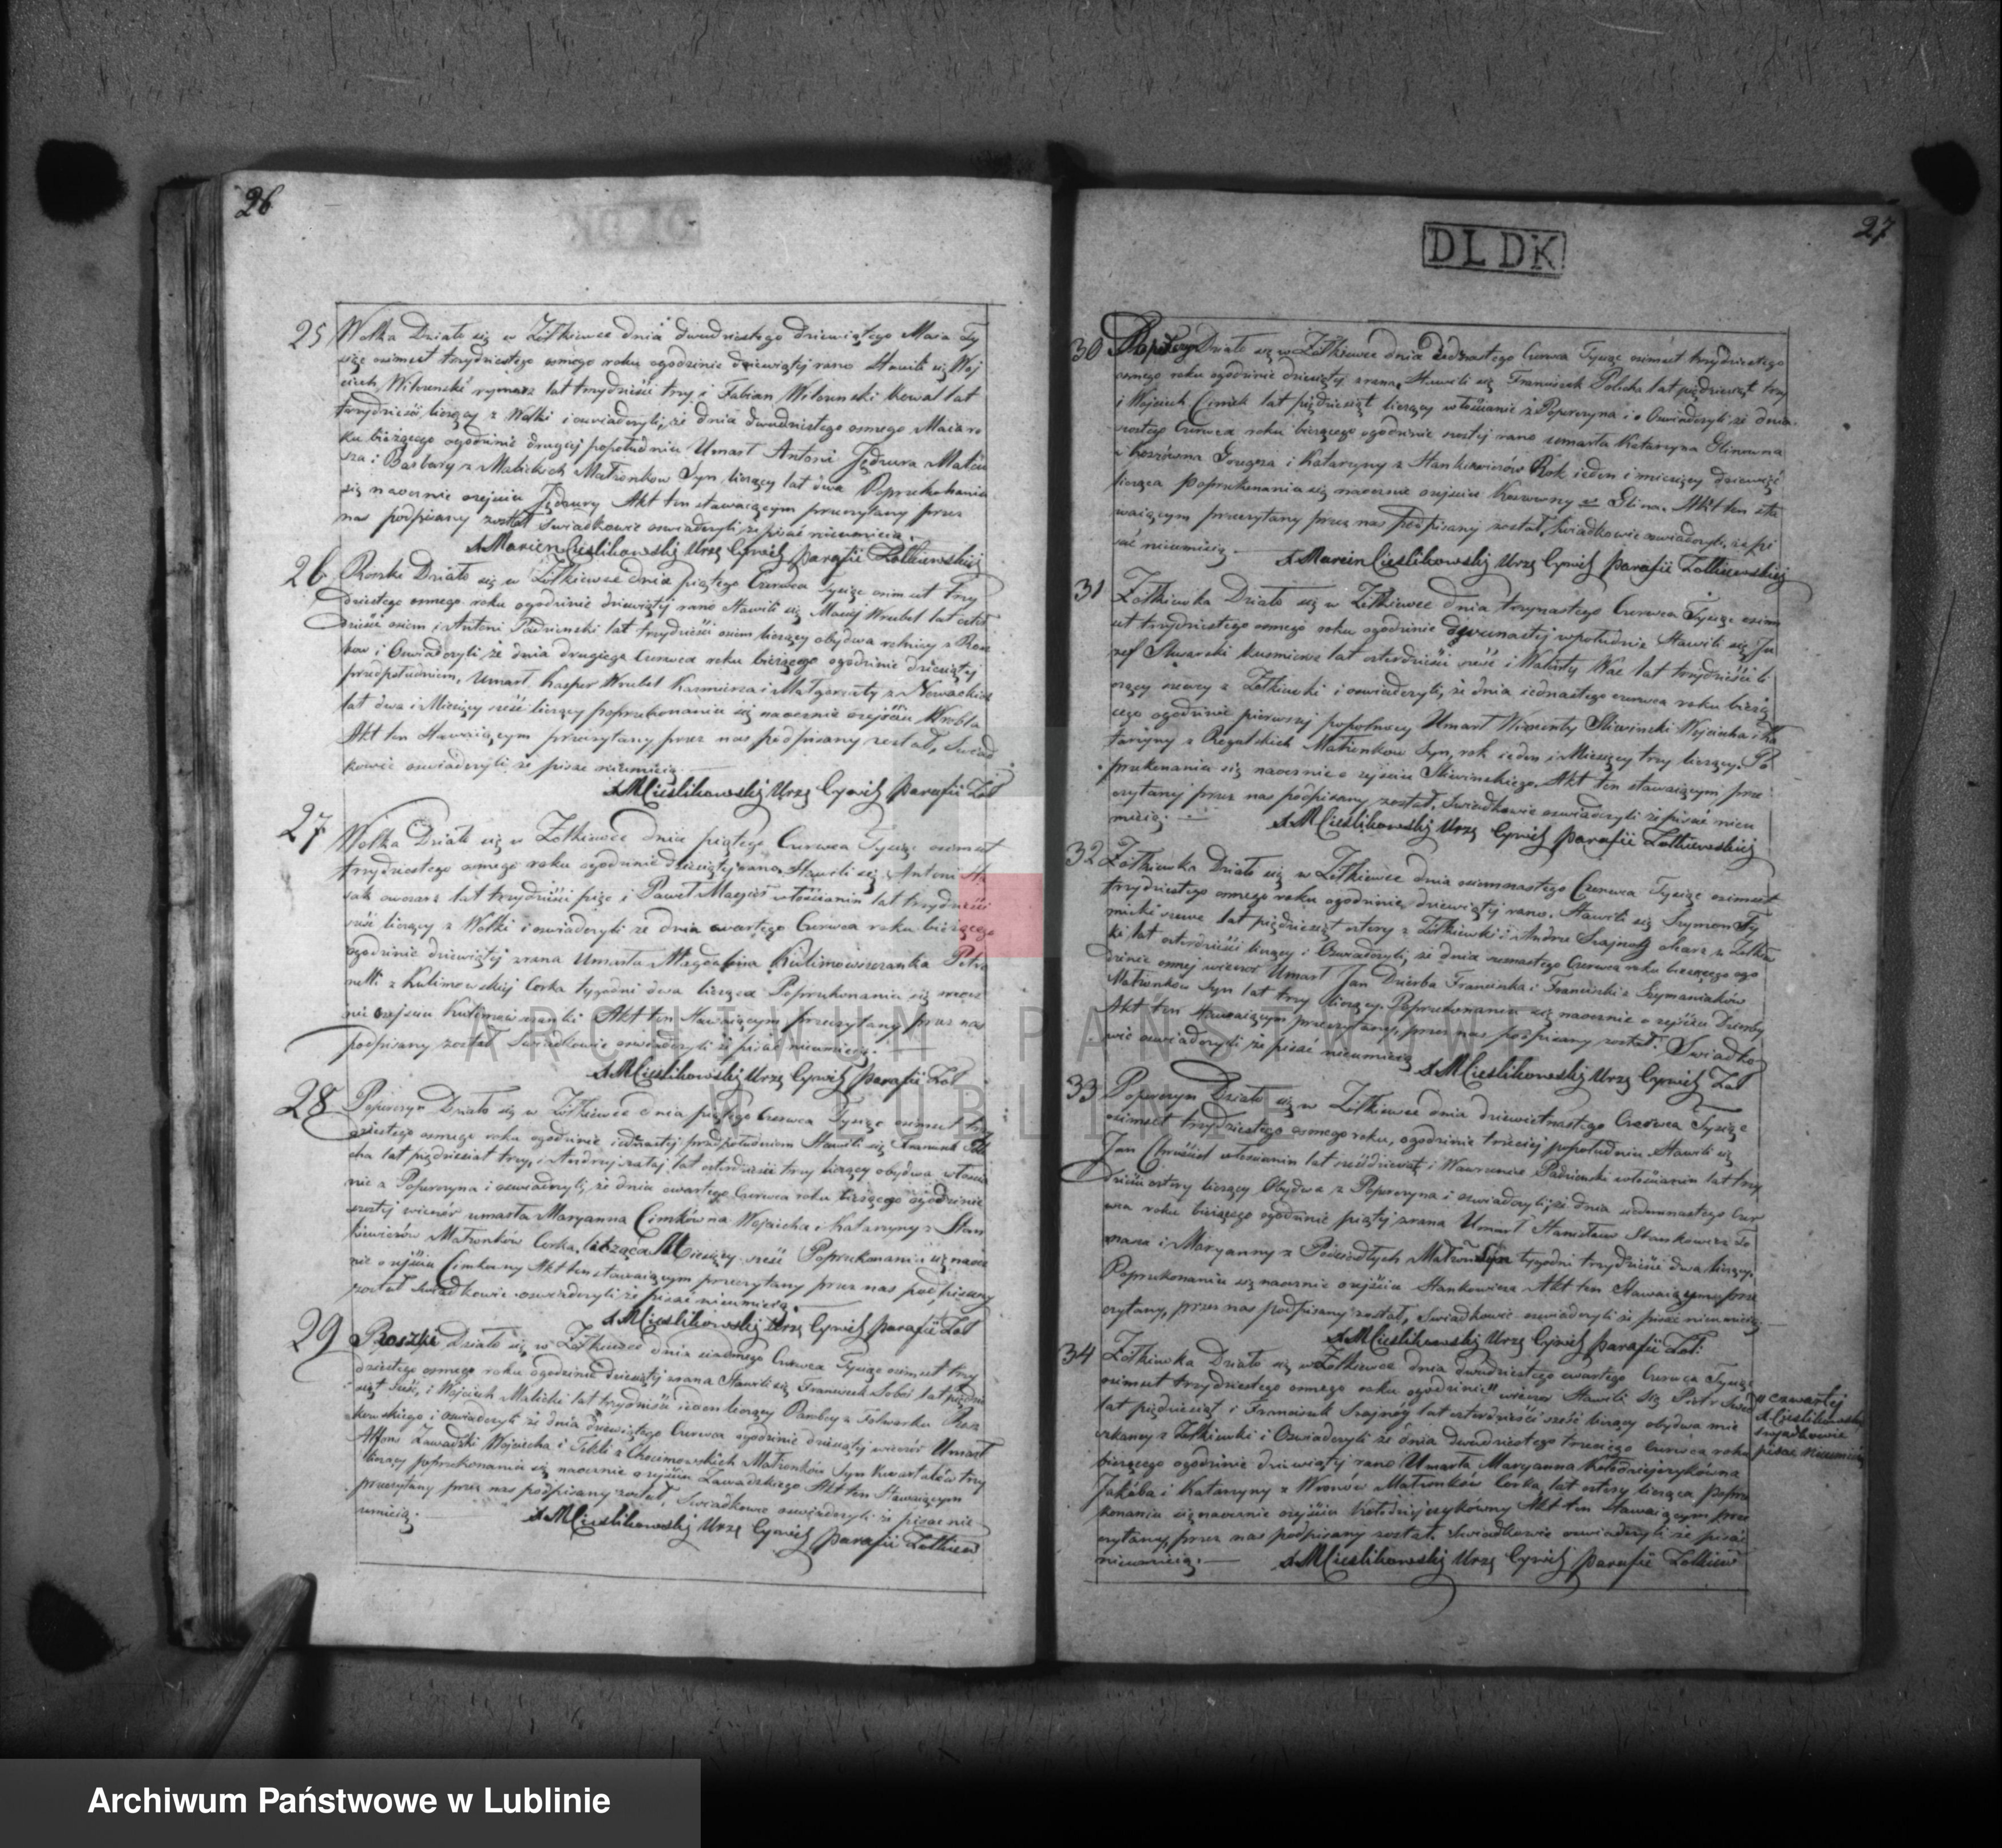 26
25 Wolka Działo się w Żółkiewce dnia dwudziestego dziewiątego Maia Ty
siąc osimset trzydziestego osmego roku o godzinie dziewiątej rano Stawili się Woj
ciech Witosinski rymarz lat trzydzieści trzy i Fabian Witosinski kowal lat
trzydzieści liczący z Wolki i oswiadczyli, że dnia dwudziestego osmego Maia ro
ku bieżącego o godzinie drugiej popołudniu Umarł Antoni Jędrura Mateu
sza i Barbary z Malickich Małżonkow Syn, liczący lat dwa Poprzekonaniu
się naocznie o zejściu Jędrury Akt ten stawaiącym przeczytany przez
nas podpisany został Swiadkowie oswiadczyli że pisać nieumieią.
X Marcin Cieślikowskij Urzę Cywilj Parafii Żółkiewskiej
26 Rożki Działo się w Żółkiewce dnia piątego Czerwca Tysiąc osimset trzy
dziestego osmego roku o godzinie dziewiątej rano Stawili się Maciej Wrubel lat czter
dzieści osiem i Antoni lat trzydzieści osiem liczący obydwa rolnicy z Roż
kow i Oswiadczyli że dnia drugiego Czerwca roku bieżącego o godzinie dziesiątej
przedpołudniem, Umarł Kasper Wrubel Kazmierza i Małgorzaty z Nowackich
lat dwa i Miesięcy sześć liczący poprzekonaniu się naocznie o zejściu Wrobla
Akt ten Stawaiącym przeczytany przez nas podpisany został, Swiad
kowie oswiadczyli że pisać nieumieią.
X MCieślikowskij Urzę Cywilj Parafii Żół
27 Wolka Działo się w Żółkiewce dnia piątego Czerwca Tysiąc osimset
trzydziestego osmego roku o godzinie dziesiątej rano Stawili się Antoni
owczarz lat trzydzieści pięć i Paweł Magier włościanin lat trzydzieści
sześć liczący z Wolki i oswiadczyli że dnia czwartego Czerwca roku bieżącego
o godzinie dziewiątej zrana Umarła Magdalina Kulimowszczanka Petro
nelli z Kulimowskiej Corka tygodni dwa licząca Poprzekonaniu się naocz
nie o zejściu Kulimowszczanki Akt ten Stawaiącym przeczytany przez nas
podpisany został Swiadkowie oswiadczyli że pisać nieumieią.
X MCieślikowskij Urzę Cywilj Parafii Żół
28 Poperczyn Działo się w Żółkiewce dnia piątego Czerwca Tysiąc osimset trzy
dziestego osmego roku o godzinie iedenastej przedpołudniem Stawili się Franciszek Polu
cha lat pięćdziesiat trzy, i Andrzej Zataj, lat czterdzieści trzy liczący obydwa włościa
nie z Poperczyna i oswiadczyli, że dnia czwartego Czerwca roku bieżącego o godzinie
szostej wieczor umarła Maryanna Cimkówna Wojciecha i Katarzyny z Stan
kiewiczów Małżonków Corka, licząca Miesięcy sześć Poprzekonaniu się naocz
nie o zejściu Cimkowny Akt ten stawaiącym przeczytany przez nas podpisany
został Swiadkowie oswiadczyli że pisać nieumieią.
X MCieślikowskij Urzę Cywilj Parafii Żół
29 Roszki Działo się w Żółkiewce dnia siodmego Czerwca Tysiąc osimset trzy
dziestego osmego roku o godzinie dziesiątej zrana Stawili się Franciszek Soboi lat pięćdzie
siąt sześć, i Wojciech Malicki lat trzydzieści ieden liczący Parobcy z Folwarku Rosz
kowskiego i oswiadczyli że dnia Czerwca o godzinie dziesiątej wieczór Umarł
Alfons Zawadzki Wojciecha i Tekli z Chocimowskich Małżonków Syn kwartałów trzy
liczący poprzekonaniu się naocznie o zejściu Zawadzkiego Akt ten Stawaiącym
przeczytany przez nas podpisany został, Swiadkowie oswiadczyli że pisać nie
umieią.
X MCieślikowskij Urzę Cywilj Parafii Żółkiew
DLDK
27
30 Poperczyn Działo się w Żółkiewce dnia Czerwca Tysiąc osimset trzydziestego
osmego roku o godzinie dziesiątej zrana, Stawili się Franciszek Polucha lat pięćdziesiąt trzy
i Wojciech Cimek lat pięćdziesiąt liczący włościanie z Poperczyna i Oswiadczyli że dnia
szostego Czerwca roku bieżącego o godzinie szostej rano umarła Katarzyna Glinowna
Grzegorza i Katarzyny z Stankiewiczów Rok ieden i miesięcy dziewięć
licząca Poprzekonaniu się naocznie o zejściu Glina. Akt ten sta
waiącym przeczytany przez nas podpisany został, Swiadkowie oswiadczyli, że pi
sać nieumieią.
X Marcin Cieślikowskij Urzę Cywilj Parafii Żółkiewskiej
31 Żółkiewka Działo się w Żółkiewce dnia trzynastego Czerwca Tysiąc osim
set trzydziestego osmego roku o godzinie dwunastej w południe Stawili się Ju
zef Skwarski kusmierz lat czterdzieści sześć i Walenty Wac lat trzydzieści li
czący szewcy z Żółkiewki i oswiadczyli, że dnia iednastego czerwca roku bieżą
cego o godzinie pierwszej popołnocy Umarł Wincenty Sliwinski Wojciecha i Ka
tarzyny z Rogalskich Małżonkow Syn, rok ieden i Miesięcy trzy liczący. Po
przekonaniu się naocznie o zejściu Sliwinskiego, Akt ten stawaiącym prze
czytany przez nas podpisany został, Swiadkowie oswiadczyli że pisać nieu
mieią.
X MCieślikowskij Urzę Cywilj Parafii Żółkiewskiej
32 Żółkiewka Działo się w Żółkiewce dnia osiemnastego Czerwca Tysiąc osimset
trzydziestego osmego roku o godzinie dziewiątej rano, Stawili się Szymon Ty
micki szewc lat pięćdziesiąt cztery z Żółkiewki i Andrzej Szajnog z Żółkiew
ki lat czterdzieści liczący i Oswiadczyli, że dnia Czerwca roku bieżącego o go
dzinie osmej wieczor Umarł Jan Dzierba Franciszka i Franciszki z Szymaniaków
Małżonkow Syn lat trzy liczący. Poprzekonaniu się naocznie o zejściu Dzierby
Akt ten Stawaiącym przeczytany, przez nas podpisany został. Swiadko
wie oswiadczyli że pisać nieumieią
X MCieślikowskij Urzę Cywilj Żół
33 Poperczyn Działo się w Żółkiewce dnia dziewietnastego Czerwca Tysiąc
osimset trzydziestego osmego roku, o godzinie trzeciej popołudniu Stawili się
Jan Chruściel włościanin lat sześćdziesiąt i Wawrzeniec włościanin lat trzy
dzieści cztery liczący Obydwa z Poperczyna i oswiadczyli, że dnia siedmnastego Czer
wca roku bieżącego o godzinie piątej zrana Umarł Stanisław Stankiewicz To
masza i Maryanny z Małżon Syn tygodni trzydzieści dwa liczący,
Poprzekonaniu się naocznie o zejściu Stankiewicza Akt ten Stawaiącym prze
czytany, przez nas podpisany został, Swiadkowie oswiadczyli że pisać nieumieią.
X MCieślikowskij Urzę Cywilj Parafii Żoł:
34 Żółkiewka Działo się w Żółkiewce dnia dwudziestego czwartego Czerwca Tysiąc
osimset trzydziestego osmego roku o godzinie // wieczor Stawili się Piotr
lat pięćdziesiąt i Franciszek Szajnog lat czterdzieści sześć liczący obydwa mie
szkancy z Żółkiewki i Oswiadczyli że dnia dwudziestego trzeciego Czerwca roku
bieżącego o godzinie dziewiątej rano Umarła Maryanna Kołodziejczykówna
Jakóba i Katarzyny z Wronów Małżonków Corka, lat cztery licząca, poprze
konaniu się naocznie o zejściu Kołodziejczykówny Akt ten Stawaiącym prze
czytany, przez nas podpisany został. Swiadkowie oswiadczyli że pisać
nieumieią.
X MCieślikowskij Urzę Cywilj Parafii Żółkiew
// czwartej
X MCieślikowskij
Swiadkowie
pisać nieumieią
ARCHIWUM PAŃSTWOWE
W LUBLINIE
Archiwum Państwowe w Lublinie